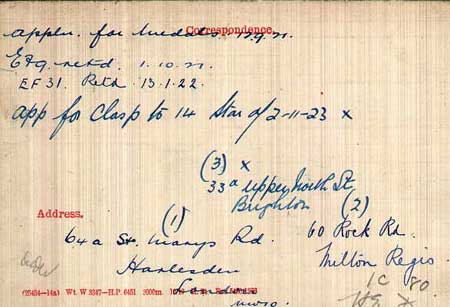 Correspondence.
Appln. for Medals. 17.9.21.
EF9. retd. 1.10.21.
EF 31. Retd 13.1.22.
app for Clasp to 14 Star of 2-11-23 x
(3) x
33a Upper North St
Brighton
Address.
(1)
(2)
64a St. Marys Rd.
60 Rock Rd.
Harlesden
Milton Regis
London
1C 80
(25484—14a) Wt. W 3347—H.P. 6451 3000m.